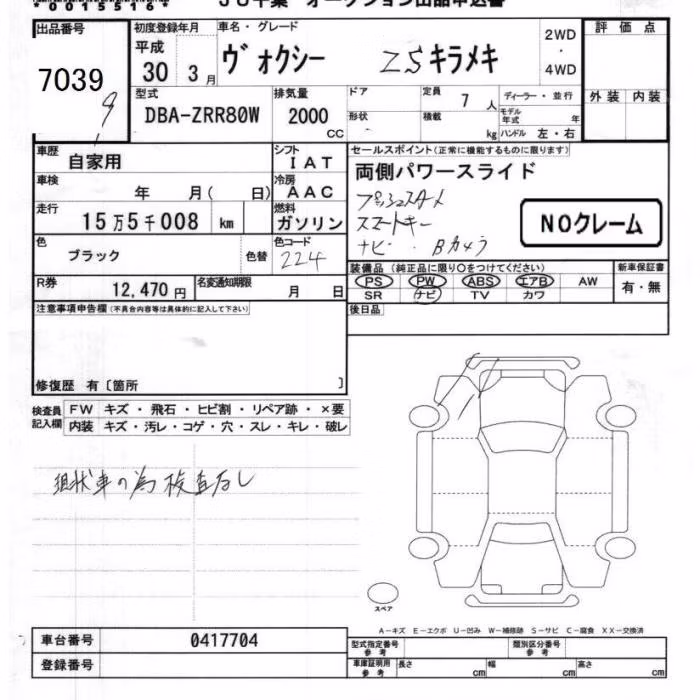 *00155161*
JU千葉 オークション出品申込書
出品番号 初度登録年月 車名・グレード 2WD ・ 4WD 評価点
7039 平成 30 3月 ヴォクシー ZSキラメキ
9
外装 内装
型式 DBA-ZRR80W 排気量 2000 CC ドア 形状 定員 7 人 積載 kg ディーラー・並行 モデル年式 年 ハンドル 左・右
車歴 自家用 シフト IAT セールスポイント(正常に機能するものに限ります)
車検 年 月( 日) 冷房 AAC 両側パワースライド
走行 15万5千008 km 燃料 ガソリン プッシュスタート
スマートキー NOクレーム
色 ブラック 色替 色コード 224 ナビ・Bカメラ
R券 12,470円 名変通知期限 月 日
装備品(純正品に限り○をつけてください) 新車保証書
PS PW ABS エアB AW 有・無
SR ナビ TV カワ
注意事項申告欄(不具合内容等は具体的に記入して下さい) 後日品
修復歴 有〔箇所 〕
検査員記入欄 FW キズ・飛石・ヒビ割・リペア跡・×要
内装 キズ・汚レ・コゲ・穴・スレ・キレ・破レ
現状車の為検査なし
スペア
A-キズ E-エクボ U-凹み W-補修跡 S-サビ C-腐食 XX-交換済
車台番号 0417704 型式指定番号 参考 類別区分番号 参考
登録番号 車庫証明用 参考 長さ cm 幅 cm 高さ cm